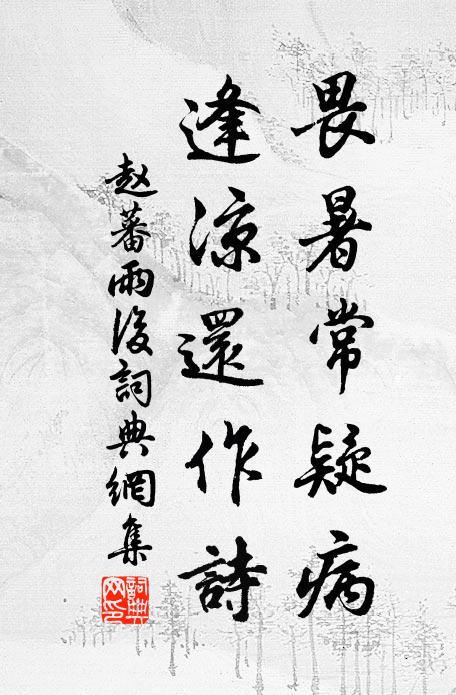 畏暑常疑病
逢涼還作詩
赵蕃雨後詞典網集
詞典网印